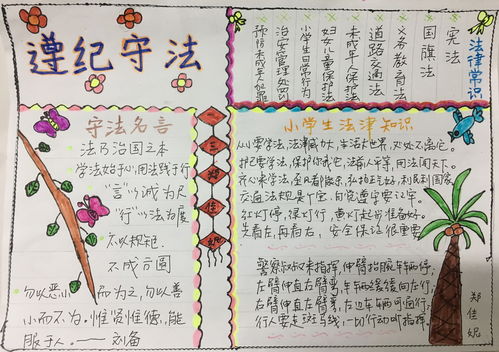 遵纪守法
法律常识
宪法
国旗法
义务教育法
道路交通法
未成年人保护法
妇女儿童保护法
小学生日常行为
治安管理处罚
预防未成年人犯罪
守法名言
法乃治国之本
学法始于心，用法践于行
“言”以诚为尺
“行”以法为度
不以规矩
不成方圆
勿以恶小而为之，勿以善
小而不为。惟贤惟德，能
服于人。——刘备
三
佳妮
小学生法律知识
从小要学法，法律威力大，生活大世界，处处不离它。
护己要学法，保护你我它，法前人平等，用法闯天下。
齐心来学法，利民利国家
交通法规是个宝，自觉遵守要记牢。
红灯停，绿灯行，黄灯起步准备好。
先看左，再看右，安全保证很重要。
警察叔叔来指挥，伸臂抬腕车辆停，
左臂伸直右臂弯，车辆缘缘向左行，
右臂伸直左臂弯，右边车辆可通行，
行人要走斑马线，一切行动听指挥。
郑佳妮